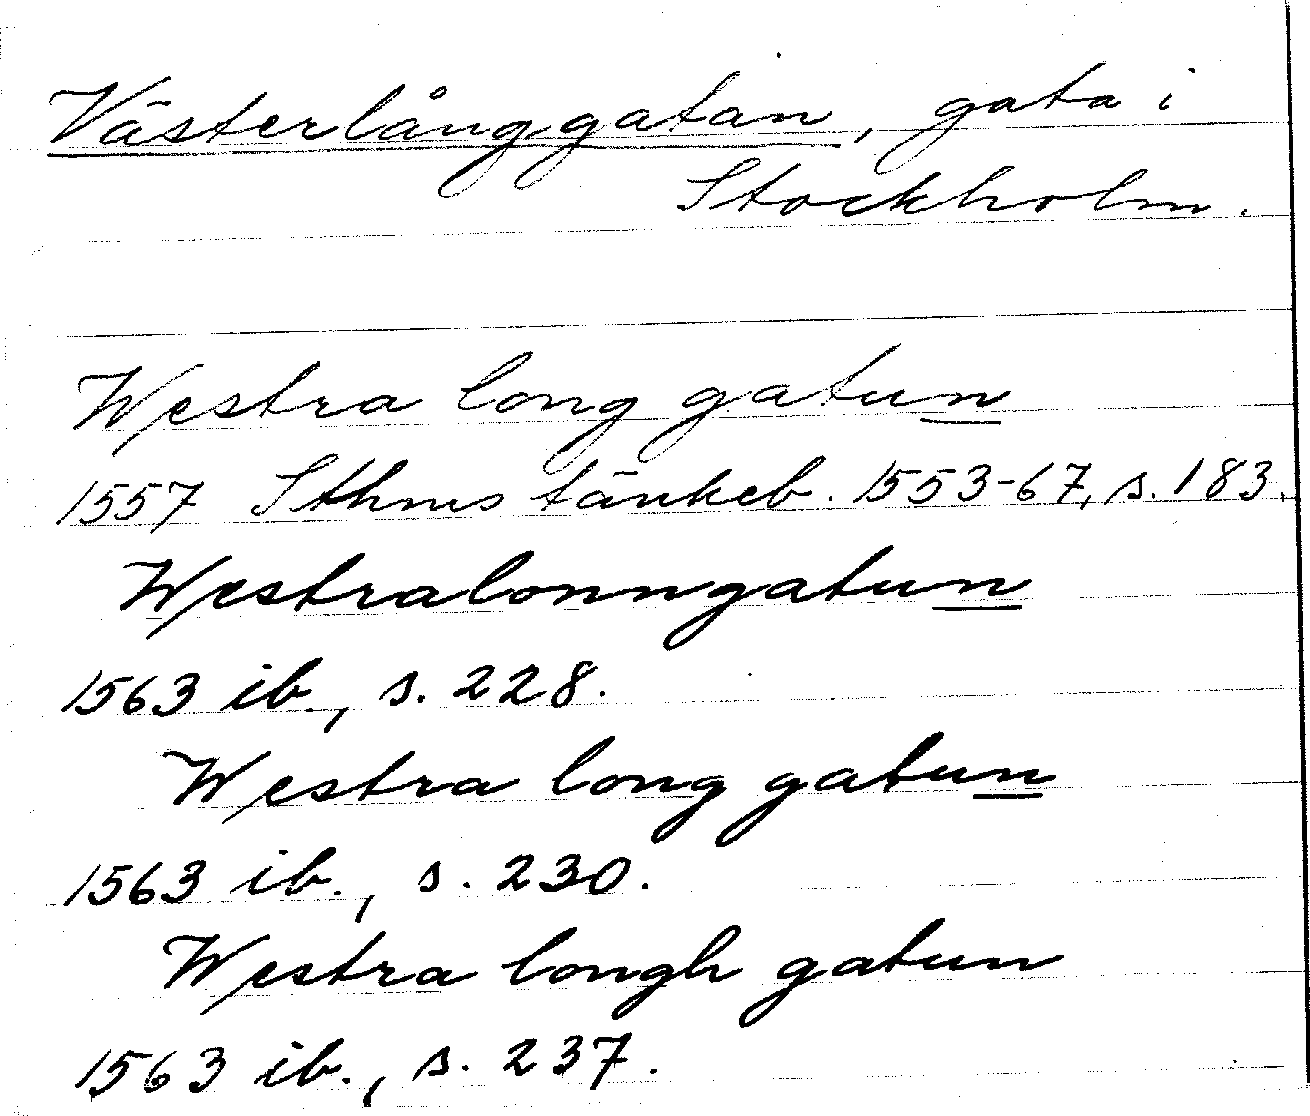 Västerlånggatan, gata i
Stockholm.
Westra long gatun
1557 Sthms tänkeb. 1553-67, s. 183.
Westralonngatun
1563 ib., s. 228.
Westra long gatun
1563 ib., s. 230.
Westra longh gatun
1563 ib., s. 237.